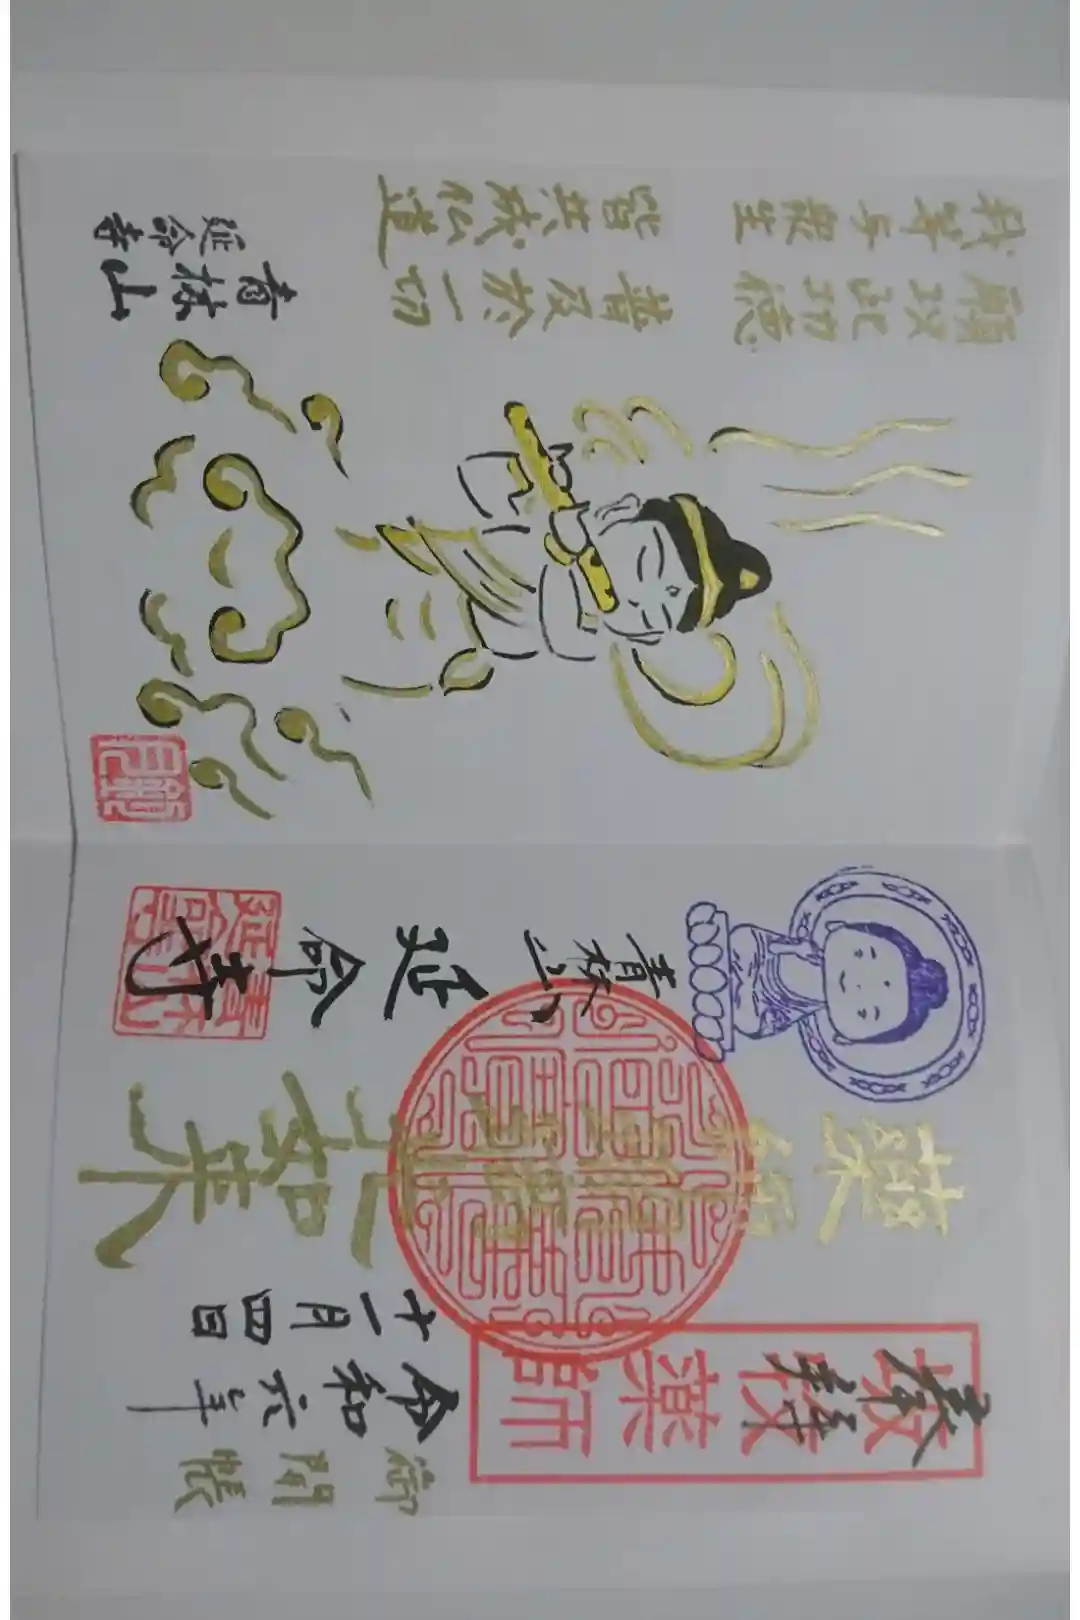 御開帳
奉拝
令和六年
十一月四日
薬師
薬師瑠璃光如来
青林山
延命寺
願以此功徳
普及於一切
我等与衆生
皆共成仏道
青林山
延命寺